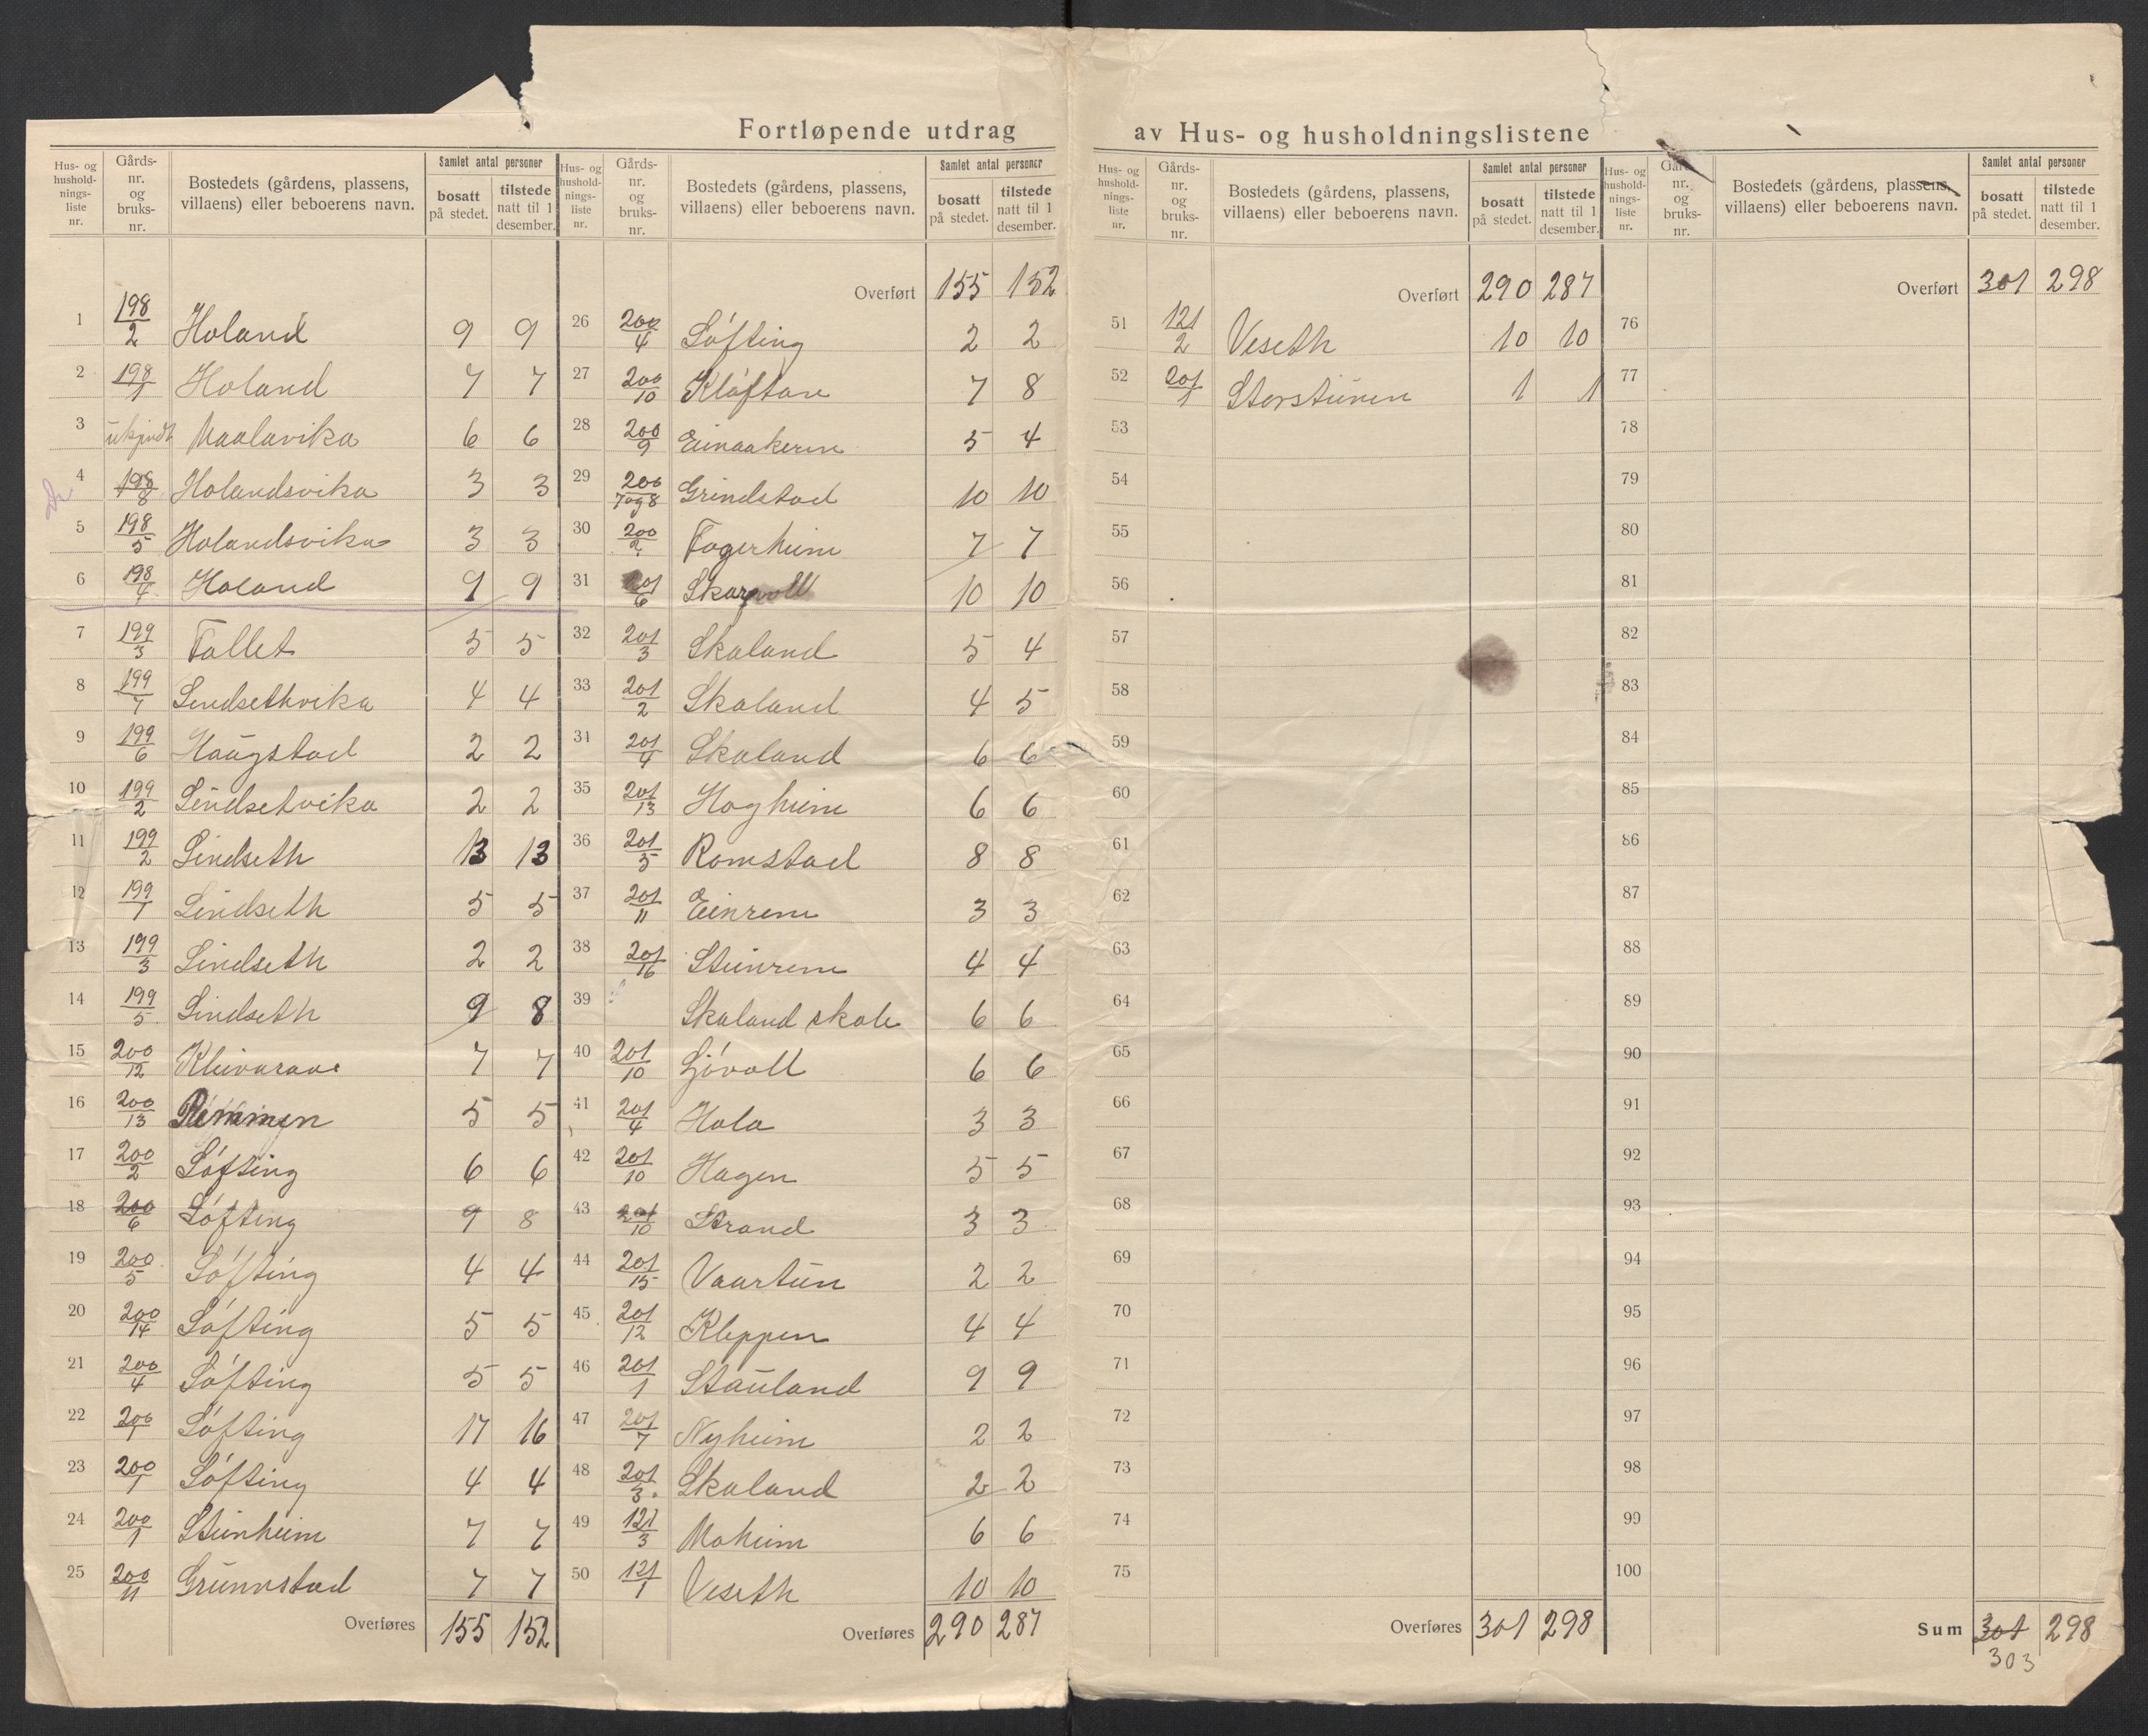 Fortløpende utdrag av Hus- og husholdningslistene
Hus- og husholdningsliste nr. Gårdsnr. og bruksnr. Bostedets (gårdens, plassens, villaens) eller beboerens navn. Samlet antal personer bosatt på stedet. tilstede natt til 1 desember.
1 198/2 Holand 9 9
2 198/1 Holand 7 7
3 ukjendt Maalavika 6 6
4 198/8 Holandsvika 3 3
5 198/5 Holandsvika 3 3
6 198/4 Holand 9 9
7 199/3 Fallet 5 5
8 199/7 Lindsethvika 4 4
9 199/6 Haugstad 2 2
10 199/2 Lindsetvika 2 2
11 199/2 Lindseth 13 13
12 199/1 Lindseth 5 5
13 199/3 Lindseth 2 2
14 199/5 Lindseth 9 8
15 200/12 7 7
16 200/13 Remmen 5 5
17 200/2 Løfting 6 6
18 200/6 Løfting 9 8
19 200/5 Løfting 4 4
20 200/14 Løfting 5 5
21 200/4 Løfting 5 5
22 200/1 Løfting 17 16
23 200/1 Løfting 4 4
24 200/1 Steinheim 7 7
25 200/11 Grunnstad 7 7
Overføres 155 152
Hus- og husholdningsliste nr. Gårdsnr. og bruksnr. Bostedets (gårdens, plassens, villaens) eller beboerens navn. Samlet antal personer bosatt på stedet. tilstede natt til 1 desember.
Overført 155 152
26 200/4 Løfting 2 2
27 200/10 Kløftan 7 8
28 200/9 Einaakeren 5 4
29 200/7og8 Grindstad 10 10
30 200/2 Fagerheim 7 7
31 201/6 Skarvoll 10 10
32 201/3 Skaland 5 4
33 201/2 Skaland 4 5
34 201/4 Skaland 6 6
35 201/13 Hagheim 6 6
36 201/5 Romstad 8 8
37 201/11 Einrem 3 3
38 201/16 Steinrem 4 4
39 Skaland skole 6 6
40 201/10 Ljøvoll 6 6
41 201/4 Hola 3 3
42 201/10 Hagen 5 5
43 201/10 Strand 3 3
44 201/15 Vaartun 2 2
45 201/12 Kleppen 4 4
46 201/1 Stauland 9 9
47 201/7 Nyheim 2 2
48 201/3 Skaland 2 2
49 121/3 Moheim 6 6
50 121/1 Veseth 10 10
Overføres 290 287
Hus- og husholdningsliste nr. Gårdsnr. og bruksnr. Bostedets (gårdens, plassens, villaens) eller beboerens navn. Samlet antal personer bosatt på stedet. tilstede natt til 1 desember.
Overført 290 287
51 121/2 Veseth 10 10
52 201/1 Storstunen 1 1
53
54
55
56
57
58
59
60
61
62
63
64
65
66
67
68
69
70
71
72
73
74
75
Overføres 301 298
Hus- og husholdningsliste nr. Gårdsnr. og bruksnr. Bostedets (gårdens, plassens, villaens) eller beboerens navn. Samlet antal personer bosatt på stedet. tilstede natt til 1 desember.
Overført 301 298
76
77
78
79
80
81
82
83
84
85
86
87
88
89
90
91
92
93
94
95
96
97
98
99
100
Sum 301 298
303